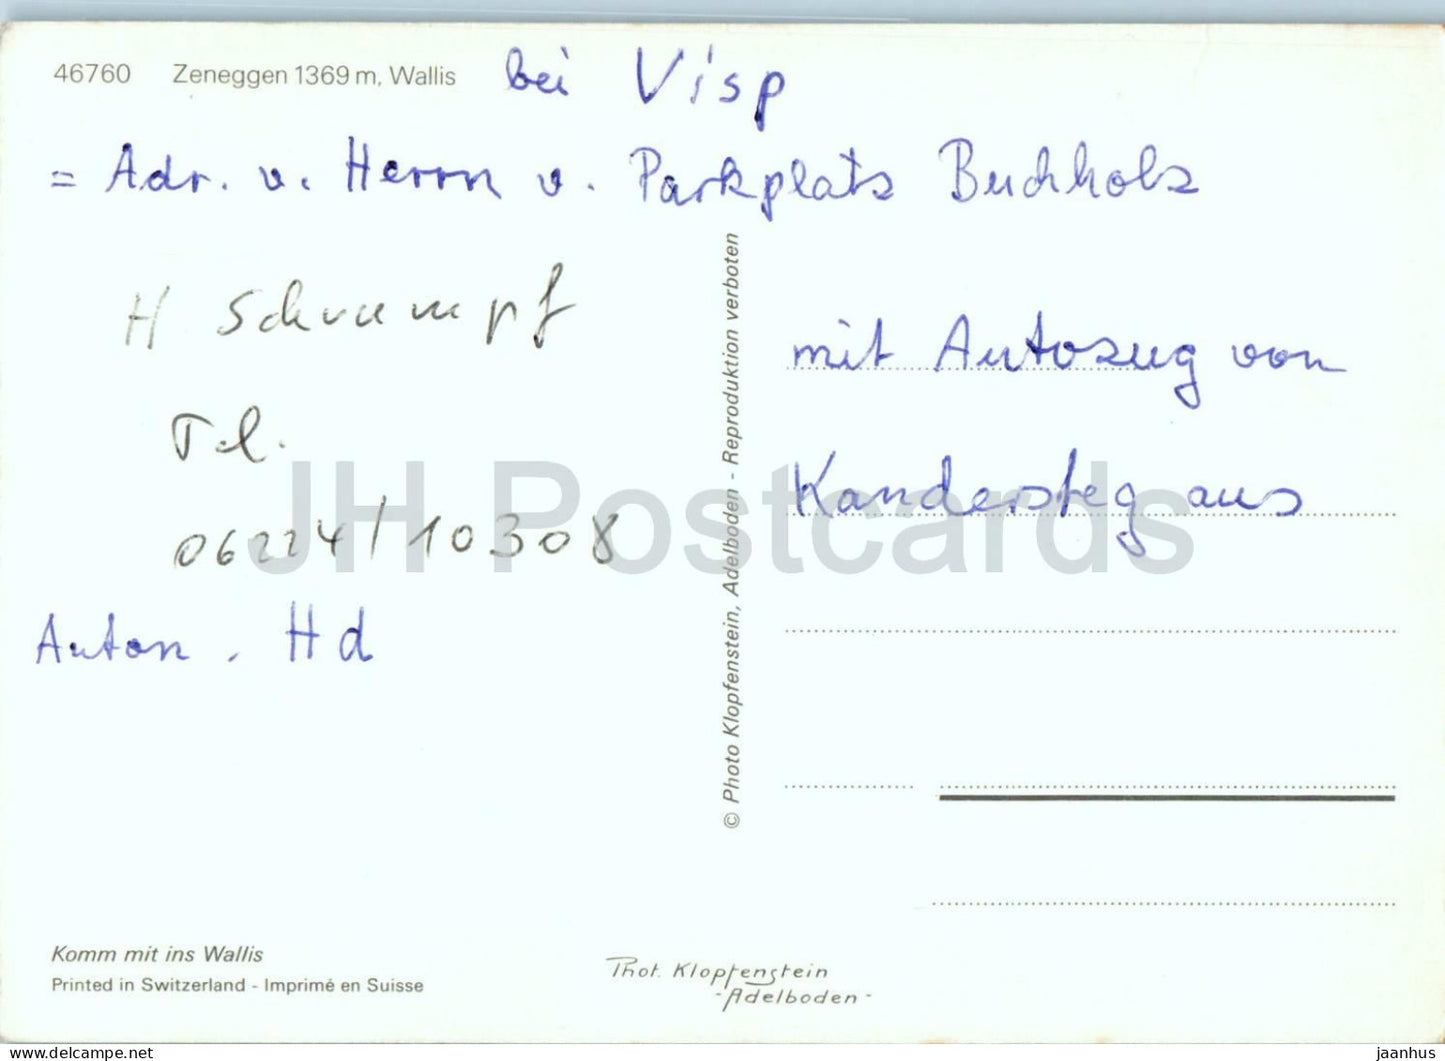 46760 Zeneggen 1369 m, Wallis bei Visp
= Adr. v. Herrn v. Parkplatz Buchholz
H Schrumpf
Tel.
06224/10308
Auton. Hd
mit Autozug von
Kandersteg aus
© Photo Klopfenstein, Adelboden - Reproduktion verboten
JH Postcards
Komm mit ins Wallis
Printed in Switzerland - Imprimé en Suisse
Phot. Klopfenstein
- Adelboden -
hippostcard.com
jaanhus